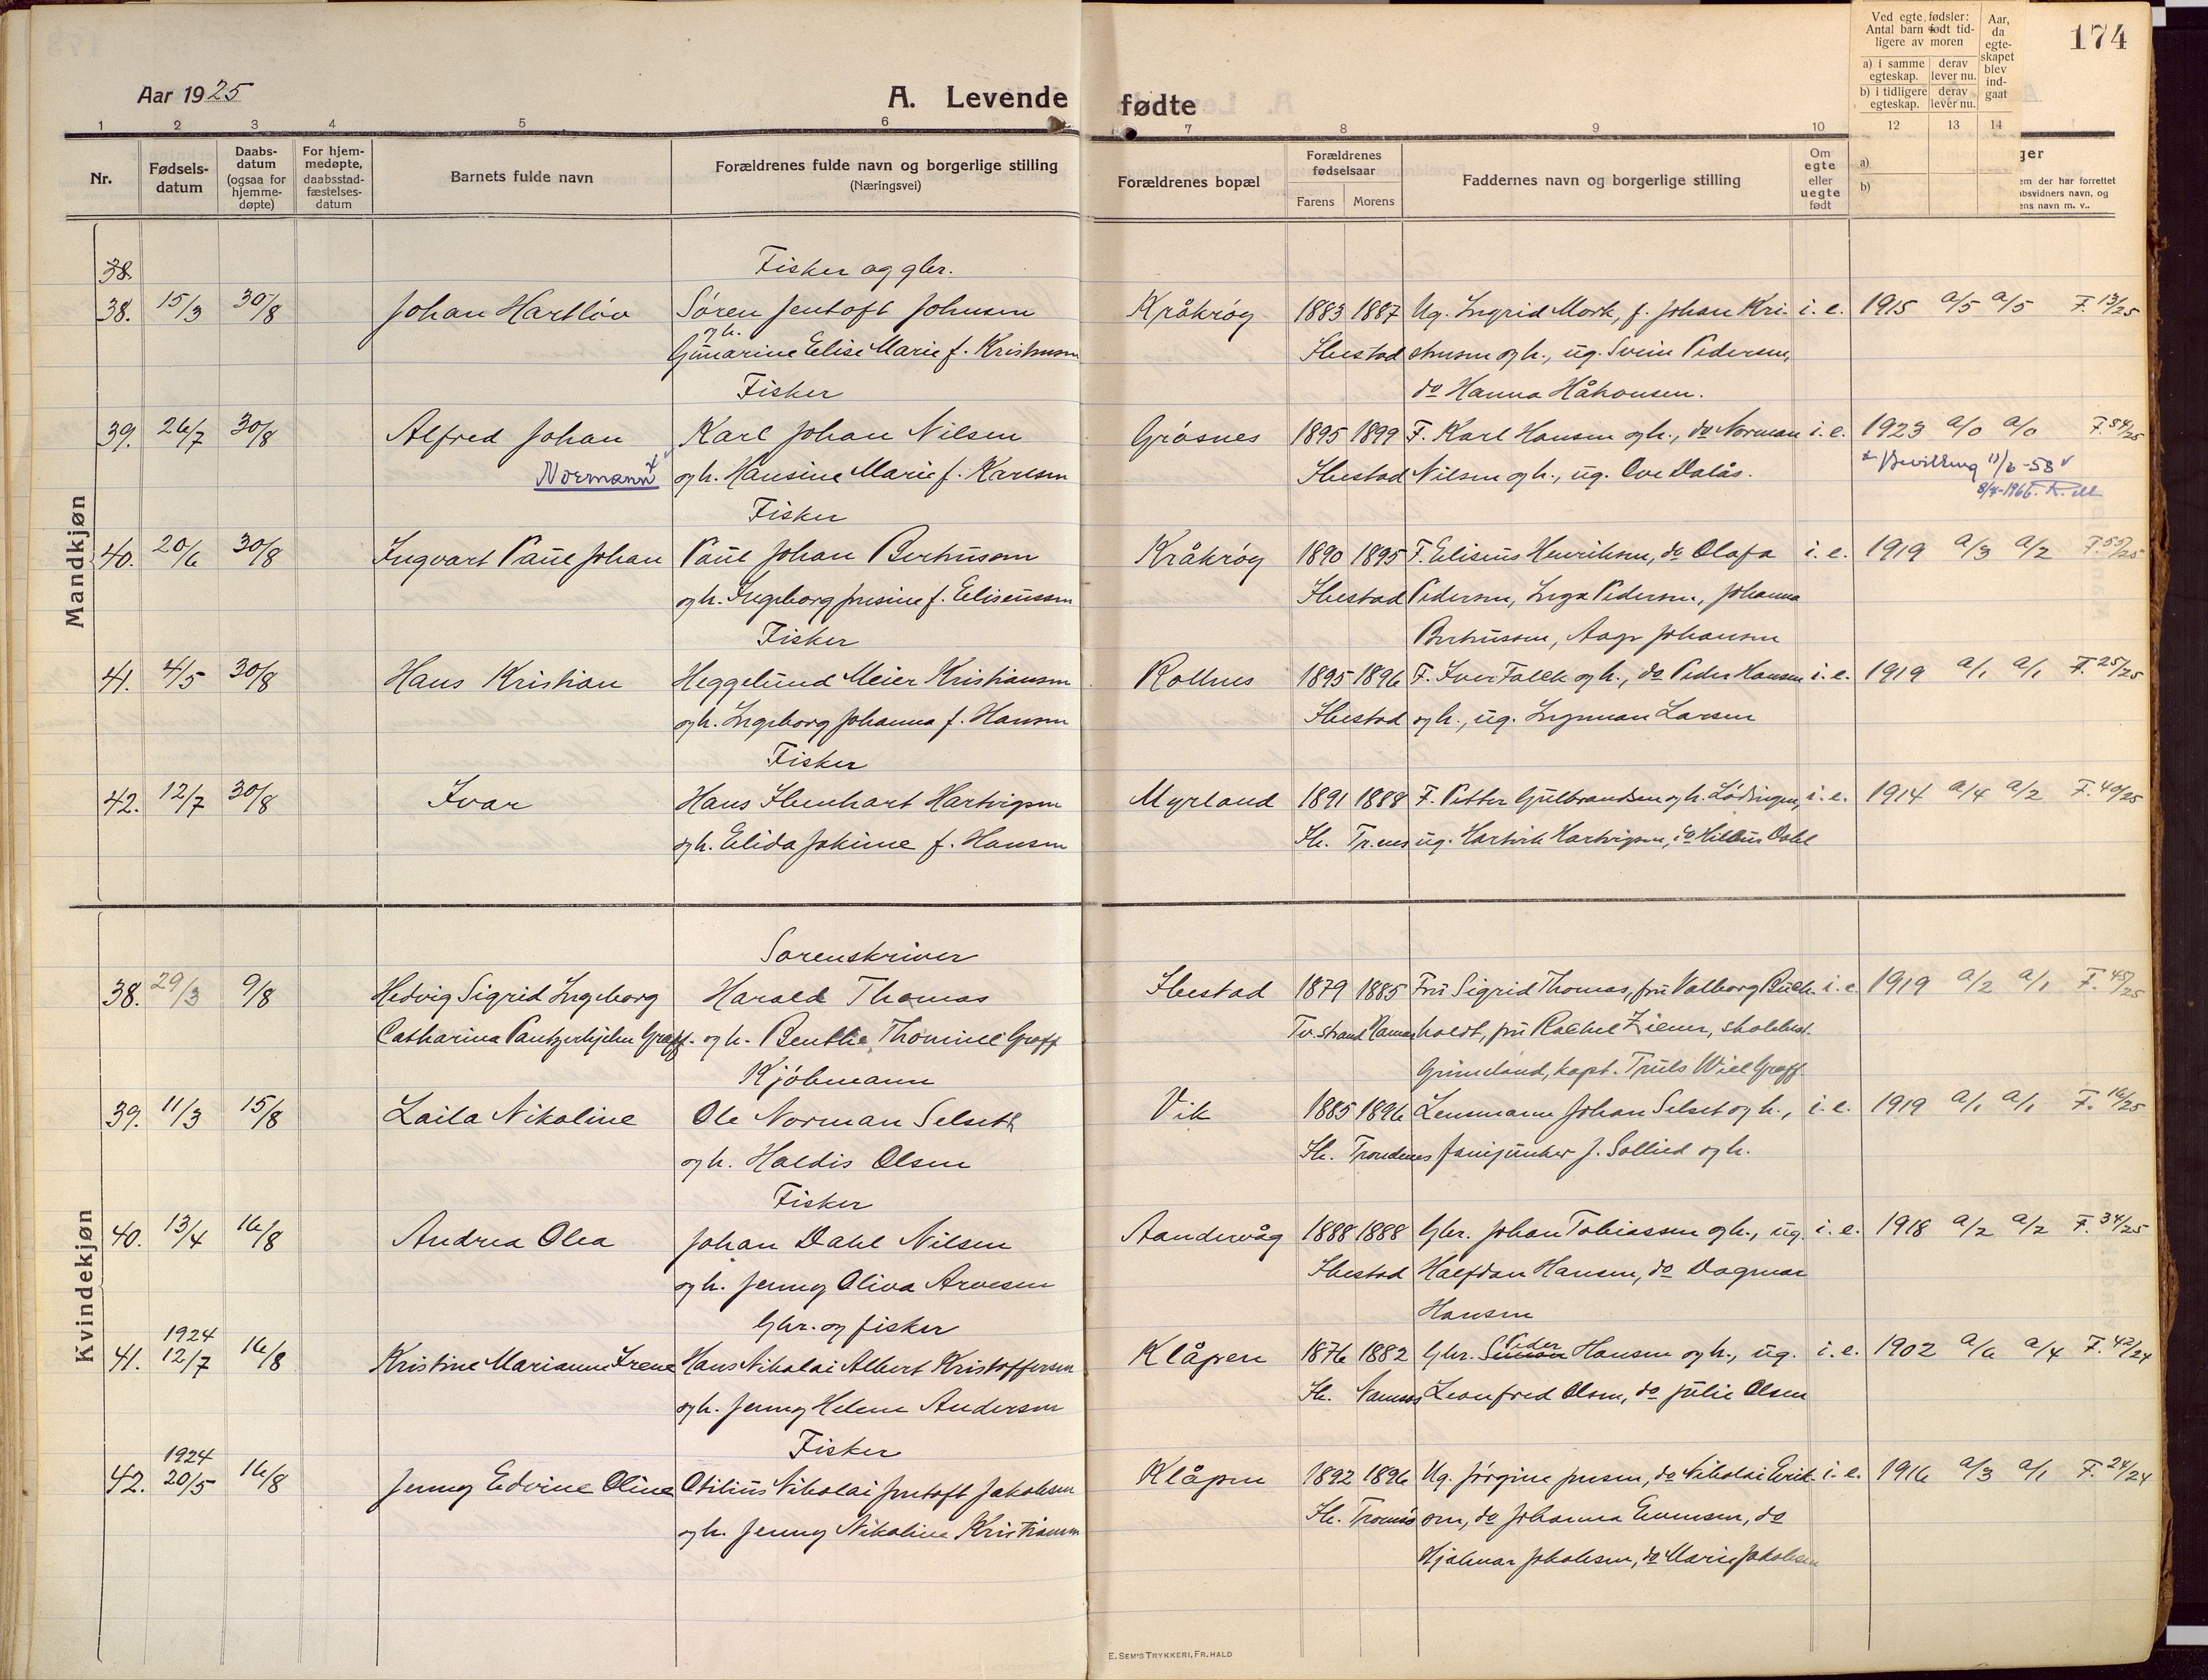 174
Aar 1925
A. Levende fødte
Ved egte fødsler: Antal barn født tidligere av moren
a) i samme egteskap. derav lever nu.
b) i tidligere egteskap. derav lever nu.
Aar, da egteskapet blev indgaat
1 2 3 4 5 6 7 8 9 10 12 13 14
Nr.
Fødselsdatum
Daabsdatum (ogsaa for hjemmedøpte)
For hjemmedøpte, daabsstadfæstelsesdatum
Barnets fulde navn
Forældrenes fulde navn og borgerlige stilling
(Næringsvei)
Forældrenes bopæl
Forældrenes fødselsaar
Farens Morens
Faddernes navn og borgerlige stilling
Om egte eller uegte født
a)
b)
ger
em der har forrettet
absvidners navn, og
ens navn m. v..
Mandkjøn
38.
Fisker og gbr.
38. 15/3 30/8 Johan Hartløv Søren Jentoft Johnsen Kråkrøg 1883 1887 Ug. Ingrid Mork, f. Johan Kri- i. e. 1915 a/5 a/5 F. 13/25
og h.
Gunarine Elise Marie f. Kristensen Ibestad stensen og h., ug. Svein Pedersen,
Fisker do Hanna Håkonsen.
39. 26/7 30/8 Alfred Johan Karl Johan Nilsen Grøsnes 1895 1899 F. Karl Hansen og h., do Norman i. e. 1923 a/0 a/0 F. 54/25
Normann x og h. Hansine Marie f. Karlsen Ibestad Nilsen og h., ug. Ove Dalås. x Bevilling 11/6-58
8/4-1966.
Fisker
40. 20/6 30/8 Ingvart Paul Johan Paul Johan Berthussen Kråkrøg 1890 1895 F. Eliseus Henriksen, do Olafa i. e. 1919 a/3 a/2 F. 55/25
og h. Ingeborg Jensine f. Eliseussen Ibestad Pedersen, Inga Pedersen, Johanna
Fisker Berthussen, Aage Johansen
41. 4/5 30/8 Hans Kristian Heggelund Meier Kristiansen Rollnes 1895 1896 F. Iver Falck og h., do Peder Hansen i. e. 1919 a/1 a/1 F. 25/25
og h. Ingeborg Johanna f. Hansen Ibestad og h., ug. Ingman Larsen
Fisker
42. 12/7 30/8 Ivar Hans Ibenhart Hartvigsen Myrland 1891 1888 F. Petter Gulbrandsen og h. Lødingen, i. e. 1914 a/4 a/2 F. 40/25
og h. Elida Jokime f. Hansen Ib. Tr.enes ug. Hartvik Hartvigsen, do Hilbus Dahl
Kvindekjøn
Sorenskriver
38. 29/3 9/8 Hedvig Sigrid Ingeborg Harald Thomas Ibestad 1879 1885 Fru Sigrid Thomas, fru Valborg Buch- i. e. 1919 a/2 a/1 F. 45/25
Catharina Pantzerhjelm Græff. og h. Benthe Thomine Græff Tv.strand Hamar holdt, fru Rachel Ziener, skolebest.
Kjøbmann Grimeland, kapt. Truls Wiel Græff
39. 11/3 15/8 Laila Nikoline Ole Norman Selseth Vik 1885 1896 Lensmann Johan Selset og h., i. e. 1919 a/1 a/1 F. 16/25
og h. Haldis Olsen Ib. Trondenes fanejunker J. Sollied og h.
Fisker
40. 13/4 16/8 Andrea Olea Johan Dahl Nilsen Aandervåg 1888 1888 Gbr. Johan Tobiassen og h., ug. i. e. 1918 a/2 a/2 F. 34/25
og h. Jenny Oliva Arvesen Ibestad Halfdan Hansen, do Dagmar
Gbr. og fisker Hansen
1924
41. 12/7 16/8 Kristine Marianne Irene Hans Nikolai Albert Kristoffersen Klåpen 1876 1882 Gbr. Simon Peder Hansen og h., ug. i. e. 1902 a/6 a/4 F. 42/24
og h. Jenny Helene Andersen Ib. Namsos Leonfred Olsen, do Julie Olsen
1924 Fisker
42. 20/5 16/8 Jenny Edvine Oline Otilius Nikolai Jentoft Jakobsen Klåpen 1892 1896 Ug. Jørgine Jensen, do Nikolai Erik- i. e. 1916 a/3 a/1 F. 24/24
og h. Jenny Nikoline Kristiansen Ib. Tromsø sen, do Johanna Evensen, do
Hjalmar Jakobsen, do Marie Jakobsen
E. SEM'S TRYKKERI, FR.HALD